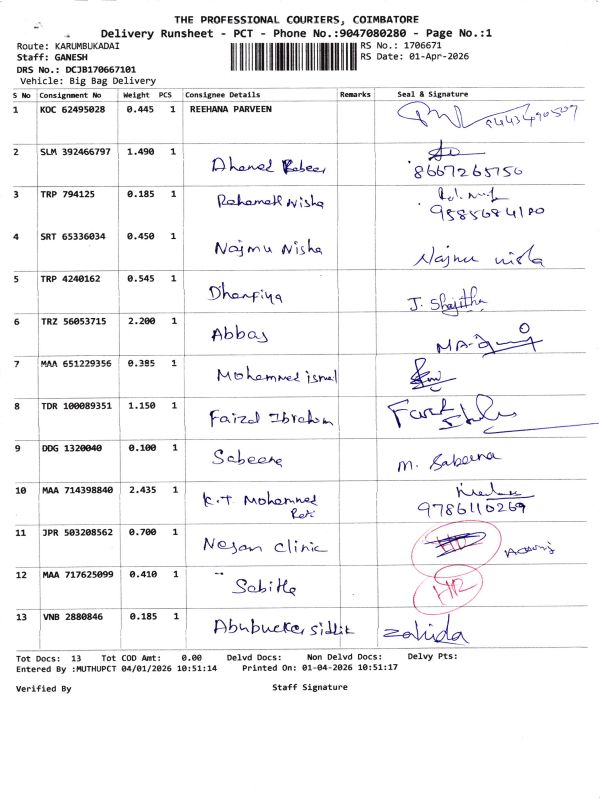 THE PROFESSIONAL COURIERS, COIMBATORE
Delivery Runsheet - PCT - Phone No.:9047080280 - Page No.:1
Route: KARUMBUKADAI
RS No.: 1706671
Staff: GANESH
RS Date: 01-Apr-2026
DRS No.: DCJB170667101
Vehicle: Big Bag Delivery
S No Consignment No Weight PCS Consignee Details Remarks Seal & Signature
1 KOC 62495028 0.445 1 REEHANA PARVEEN
2 SLM 392466797 1.490 1
Ahamed 8667265750
3 TRP 794125 0.185 1
Rahamath Nisha
4 SRT 65336034 0.450 1
Najmu Nisha Najmu nisha
5 TRP 4240162 0.545 1
Dhanfiya J. Shajitha
6 TRZ 56053715 2.200 1
Abbas
7 MAA 651229356 0.385 1
Mohammed ismel
8 TDR 100089351 1.150 1
Faizal Ibrahim
9 DDG 1320040 0.100 1
Sabeena M. Sabeena
10 MAA 714398840 2.435 1
K.T Mohammed 9786110269
11 JPR 503208562 0.700 1
Nesan clinic
12 MAA 717625099 0.410 1
Sabitha HR
13 VNB 2880846 0.185 1
Abubucker Sidlik Zahida
Tot Docs: 13 Tot COD Amt: 0.00 Delvd Docs: Non Delvd Docs: Delvy Pts:
Entered By :MUTHUPCT 04/01/2026 10:51:14 Printed On: 01-04-2026 10:51:17
Verified By Staff Signature